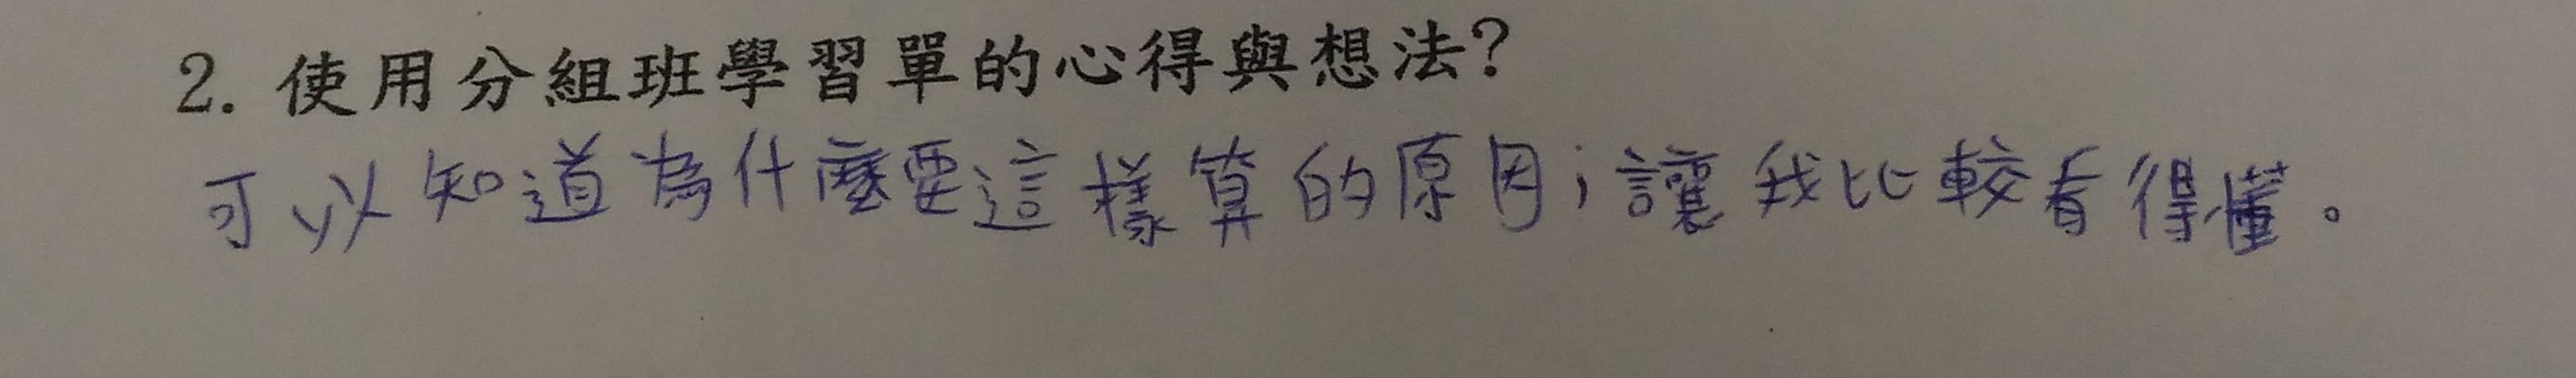 2. 使用分組班學習單的心得與想法?
可以知道為什麼要這樣算的原因;讓我比較看得懂。